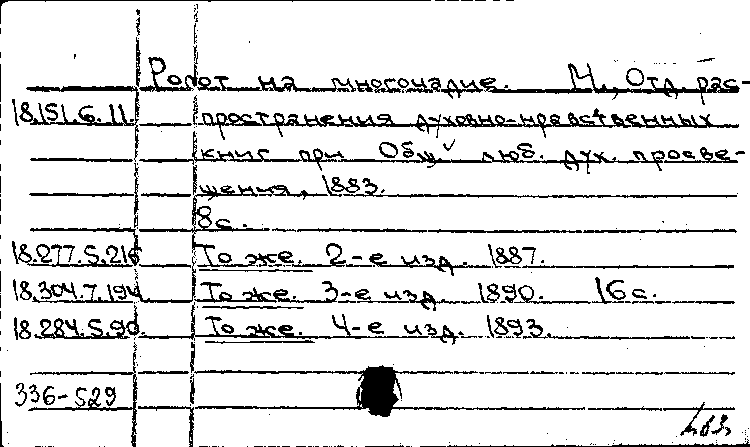 Ропот на многочадие. М., Отд. рас-
18.151.6.11. пространения духовно-нравственных
книг при Общ. люб. дух. просве-
щения, 1883.
8с.
18.277.5.216 То же. 2-е изд. 1887.
18.304.7.194 То же. 3-е изд. 1890. 16с.
18.284.5.90. То же. 4-е изд. 1893.
336-529